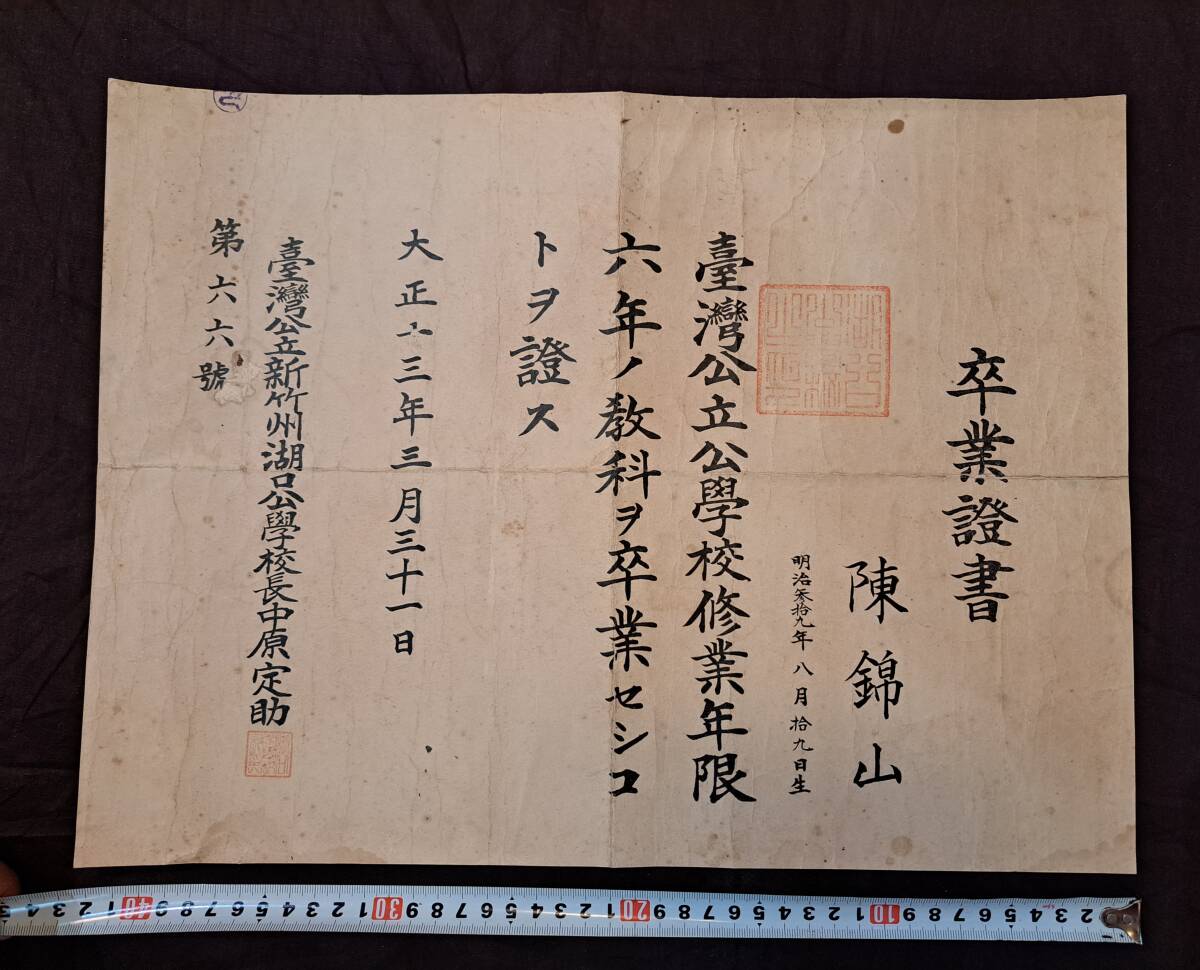 卒業證書
陳錦山
明治參拾九年八月拾九日生
臺灣公立公學校修業年限
六年ノ教科ヲ卒業セシコ
トヲ證ス
大正十三年三月三十一日
臺灣公立新竹州湖口公學校長中原定助
第六六號
1 2 3 4 5 6 7 8 9 10 1 2 3 4 5 6 7 8 9 20 1 2 3 4 5 6 7 8 9 30 1 2 3 4 5 6 7 8 9 40 1 2 3 4